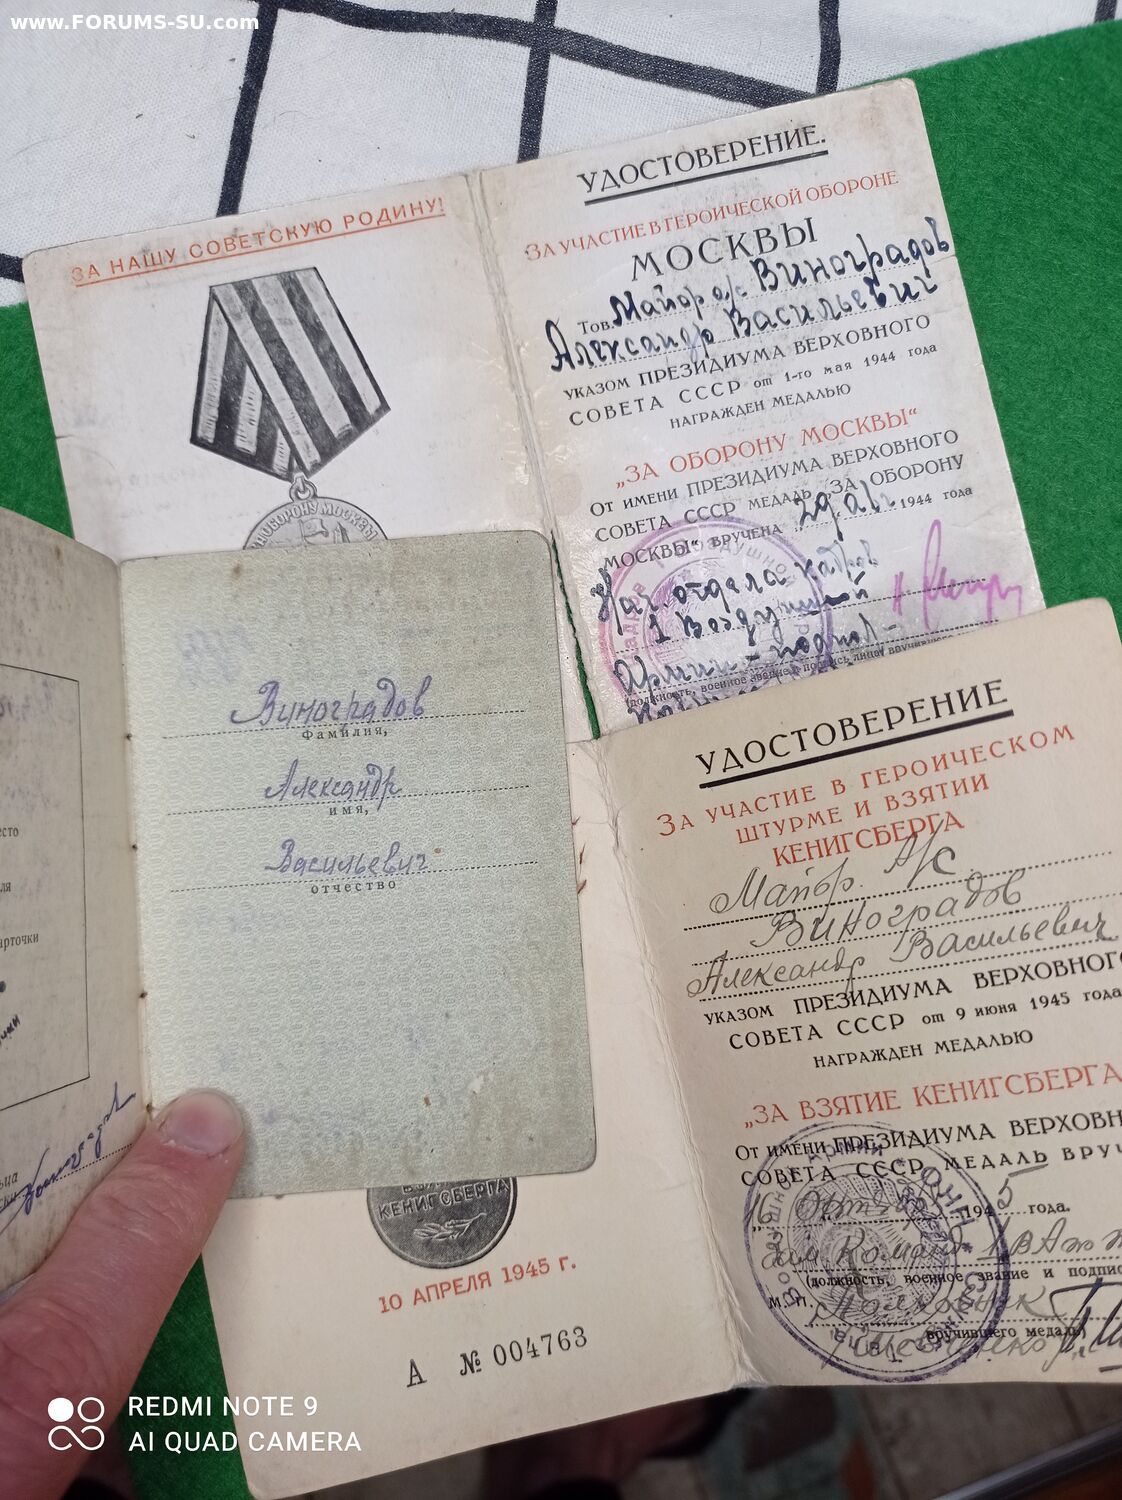 www.FORUMS-SU.com
ЗА НАШУ СОВЕТСКУЮ РОДИНУ!
УДОСТОВЕРЕНИЕ.
ЗА УЧАСТИЕ В ГЕРОИЧЕСКОЙ ОБОРОНЕ
МОСКВЫ
Тов. Майор а/с Виноградов
Александр Васильевич
УКАЗОМ ПРЕЗИДИУМА ВЕРХОВНОГО
СОВЕТА СССР от 1-го мая 1944 года
НАГРАЖДЕН МЕДАЛЬЮ
„ЗА ОБОРОНУ МОСКВЫ“
От имени ПРЕЗИДИУМА ВЕРХОВНОГО
СОВЕТА СССР МЕДАЛЬ „ЗА ОБОРОНУ
МОСКВЫ“ ВРУЧЕНА 1944 года
Нач. отдела кадров
1 Воздушной
(должность, военное звание и подпись лица, вручившего
Виноградов
фамилия,
Александр
имя,
Васильевич
отчество
арточки
УДОСТОВЕРЕНИЕ
ЗА УЧАСТИЕ В ГЕРОИЧЕСКОМ
ШТУРМЕ И ВЗЯТИИ
КЕНИГСБЕРГА
Майор А/С
Виноградов
Александр Васильевич
УКАЗОМ ПРЕЗИДИУМА ВЕРХОВНОГО
СОВЕТА СССР от 9 июня 1945 года
НАГРАЖДЕН МЕДАЛЬЮ
„ЗА ВЗЯТИЕ КЕНИГСБЕРГА
От имени ПРЕЗИДИУМА ВЕРХОВН
СОВЕТА СССР МЕДАЛЬ ВРУЧ
„16 1945 года.
Зам. Команд.
(должность, военное звание и подпис
М. П. Полковник
вручившего медаль)
КЕНИГСБЕРГА
10 АПРЕЛЯ 1945 г.
А № 004763
REDMI NOTE 9
AI QUAD CAMERA